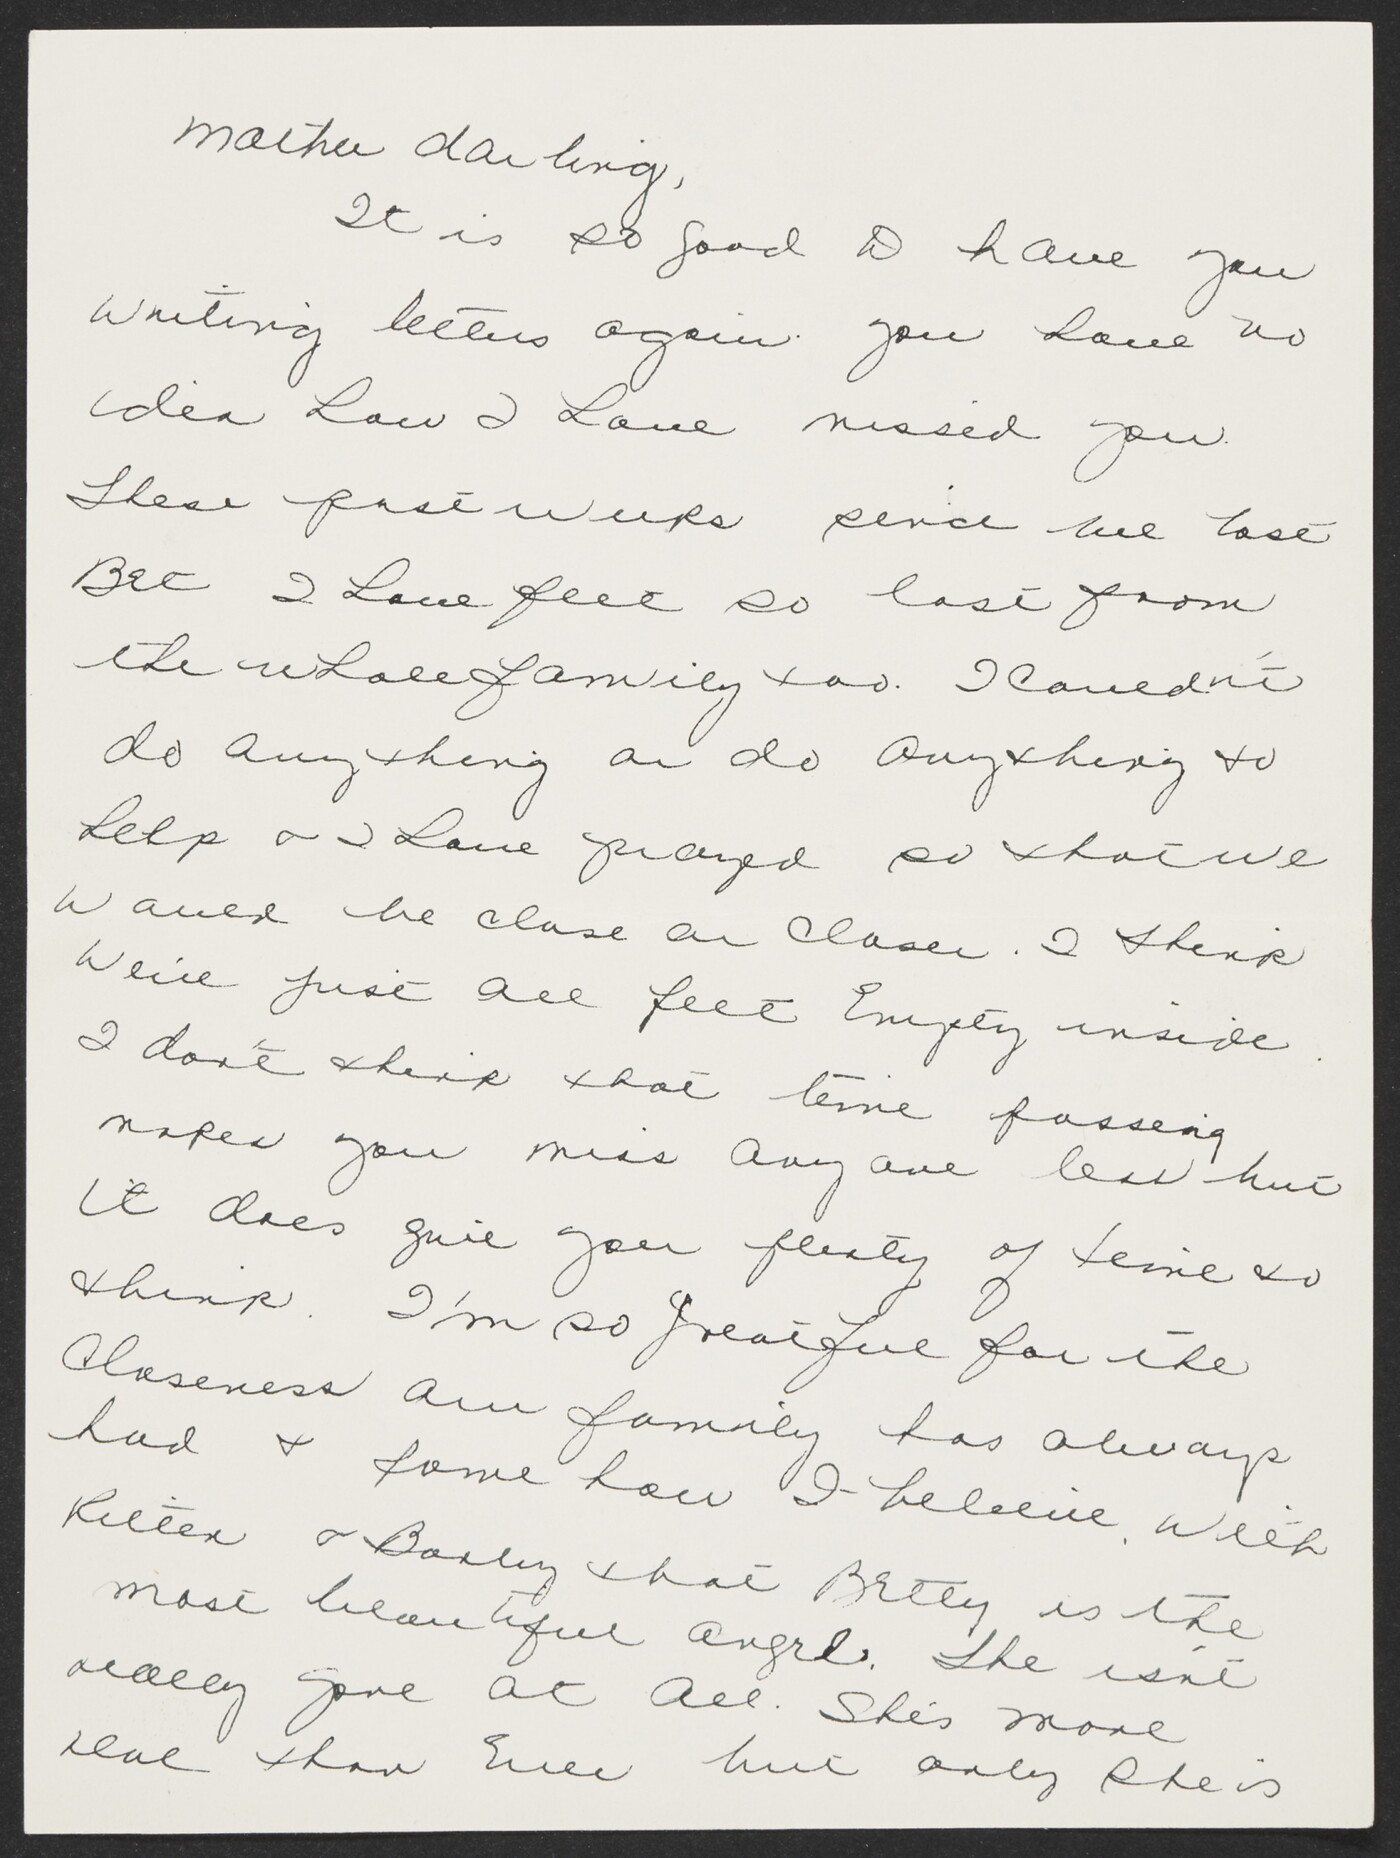 Mother darling,
It is so good to have you
writing letters again. you have no
idea how I have missed you.
These past weeks since we lost
Bet I have felt so lost from
the whole family too. I couldn't
do anything or do anything to
help & I have prayed so that we
would be close or closer. I think
We've just all felt Empty inside.
I don't think that time passing
makes you miss anyone less but
it does give you plenty of time to
think. I'm so greatful for the
Closeness our family has always
had & some how I believe, with
Kitten & Barley that Betty is the
most beautiful angel. She isn't
really gone at all. She's more
real than Ever but only she is